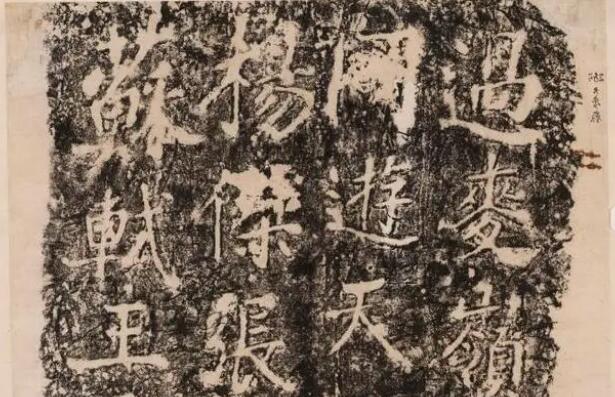 蘇軾王
楊傑張
同遊天
過麥嶺